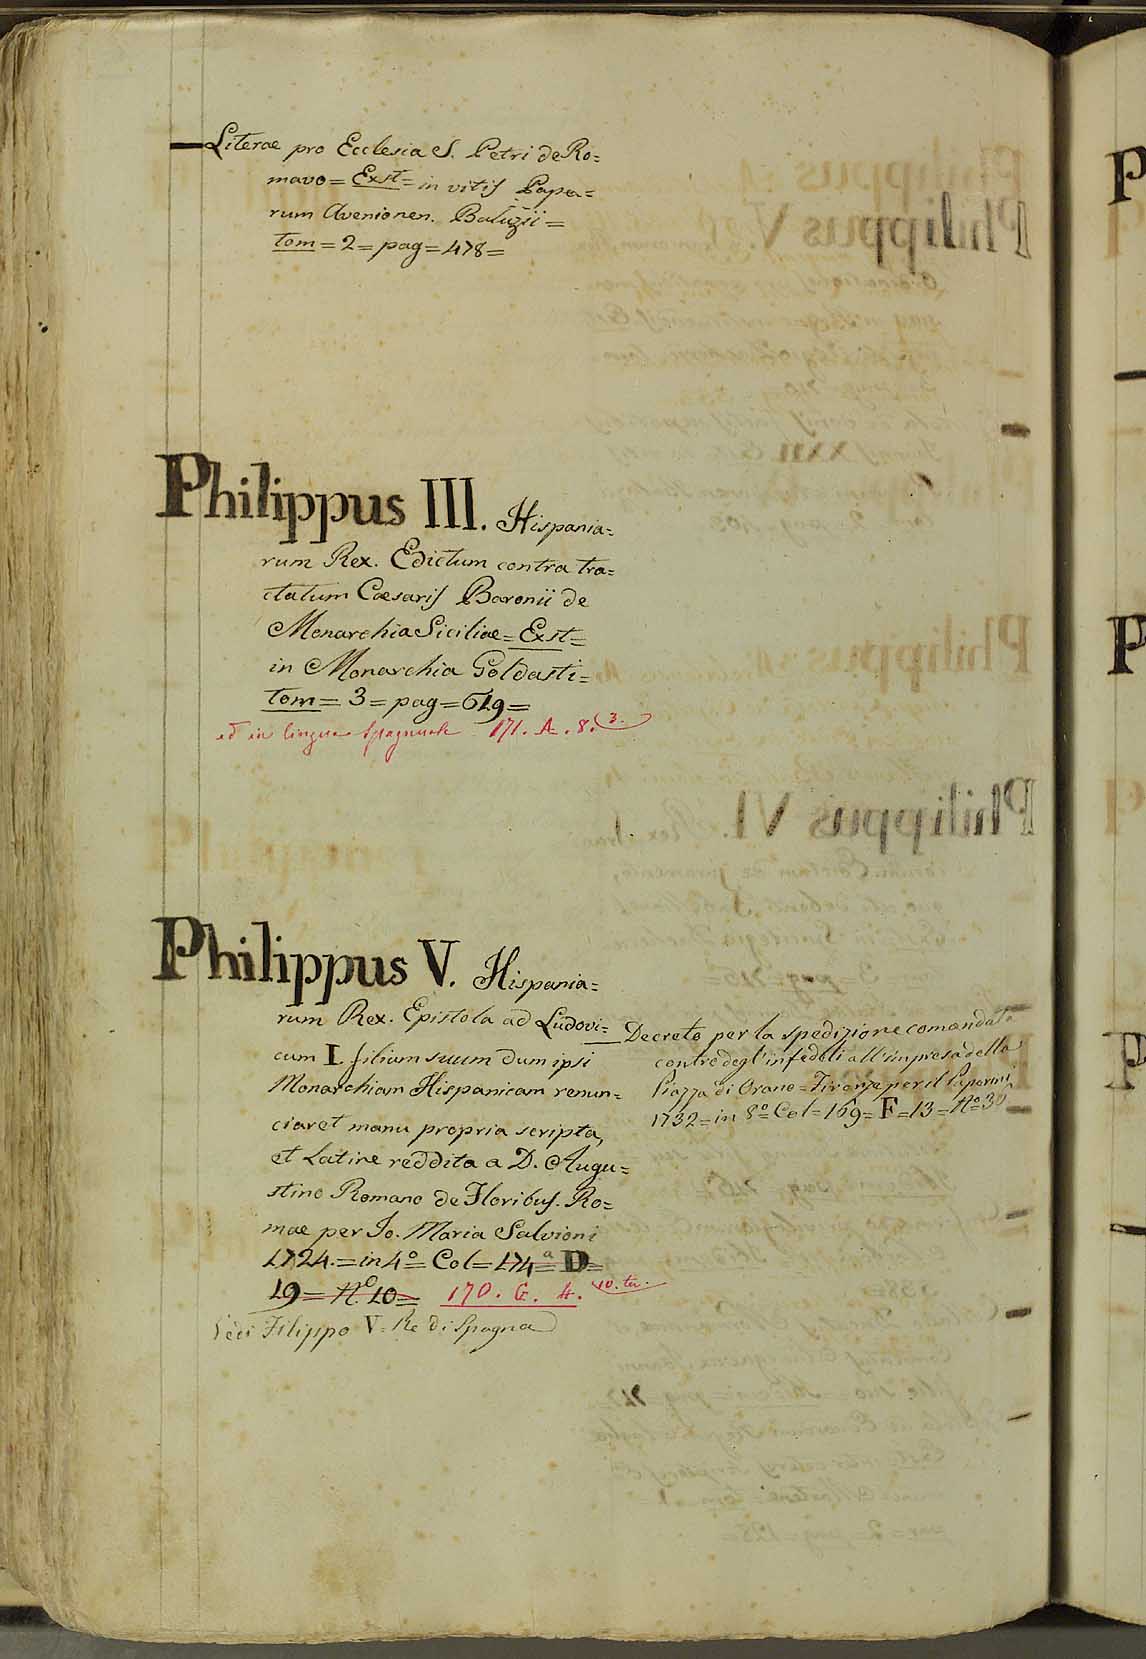 Literae pro Ecclesia S. Petri de Ro=
mavo= Exst= in vitis Papa=
rum Avenionen. Baluzii=
tom= 2= pag= 478=
Philippus III. Hispania=
rum Rex. Edictum contra tra=
ctatum Caesaris Baronii de
Monarchia Siciliae= Exst=
in Monarchia Goldasti=
tom= 3= pag= 619=
ed in lingua Spagnuola 171. A. 8. 3.
Philippus V. Hispania=
rum Rex. Epistola ad Ludovi=
cum I. filium suum dum ipsi
Monarchiam Hispanicam renun=
ciaret manu propria scripta,
et Latine reddita a D. Augu=
stino Romano de Floribus. Ro=
mae per Jo. Maria Salvioni
1724.= in 4º= Col= 174ª= D=
19= Nº 10= 170. G. 4. 10. ter.
Vedi Filippo V. Re di Spagna
Decreto per la spedizione comandata
contro degl'infedeli all'impresa della
Piazza di Orano= Firenze per il Paperini
1732= in 8º= Col= 169= F= 13= Nº 30